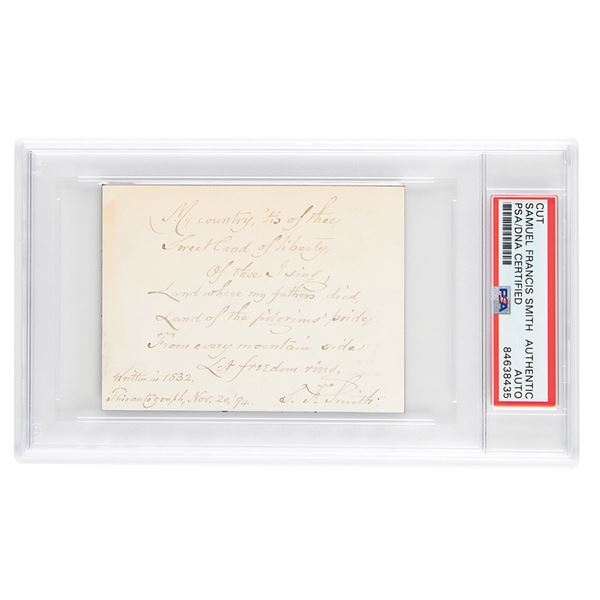 My country, 'tis of thee
Sweet land of liberty,
Of thee I sing,
Land where my fathers died,
Land of the pilgrims' pride,
From every mountain side
Let freedom ring.
Written in 1832.
This autograph, Nov. 20, '94.
S. F. Smith.
CUT
SAMUEL FRANCIS SMITH AUTHENTIC
PSA/DNA CERTIFIED AUTO
84638435
PSA